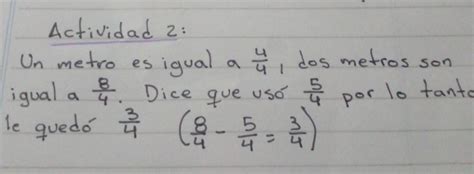 Actividad 2:
Un metro es igual a 4/4, dos metros son
igual a 8/4. Dice que usó 5/4 por lo tanto
le quedó 3/4 (8/4 - 5/4 = 3/4)